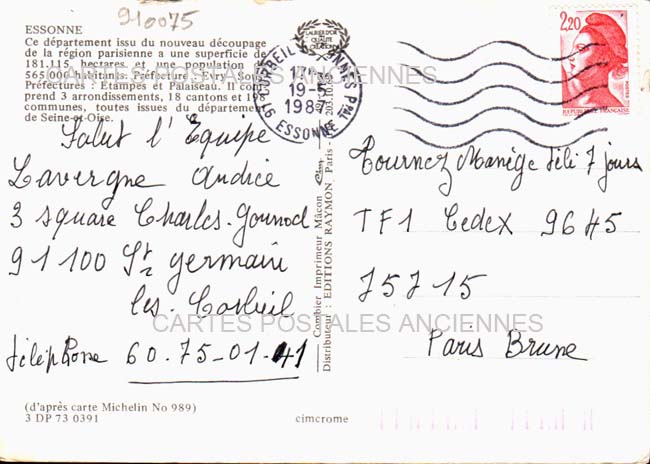 910075
ESSONNE
Ce département issu du nouveau découpage
de la région parisienne a une superficie de
181.115 hectares et une population de
565 000 habitants. Préfecture : Evry. Sous-
Préfectures : Etampes et Palaiseau. Il com-
prend 3 arrondissements, 18 cantons et 198
communes, toutes issues du département
de Seine-et-Oise.
Salut l'Equipe
Lavergne Andrée
3 square Charles-Gounod
91100 St Germain
les-Corbeil
téléphone 60.75-01-41
(d'après carte Michelin No 989)
3 DP 73 0391
cimcrome
Combier Imprimeur Mâcon
Distributeur : EDITIONS RAYMON, Paris -
LAURIER D'OR
DE LA QUALITE
CREATION
CORBEIL ESSONNES PPAL
17H
19-5
1987
91 ESSONNE
2,20
REPUBLIQUE FRANÇAISE
POSTES
Tournez Manège téli 7 jours
TF1 Cedex 9645
75715
Paris Brune
CARTES POSTALES ANCIENNES
CARTES POSTALES ANCIENNES